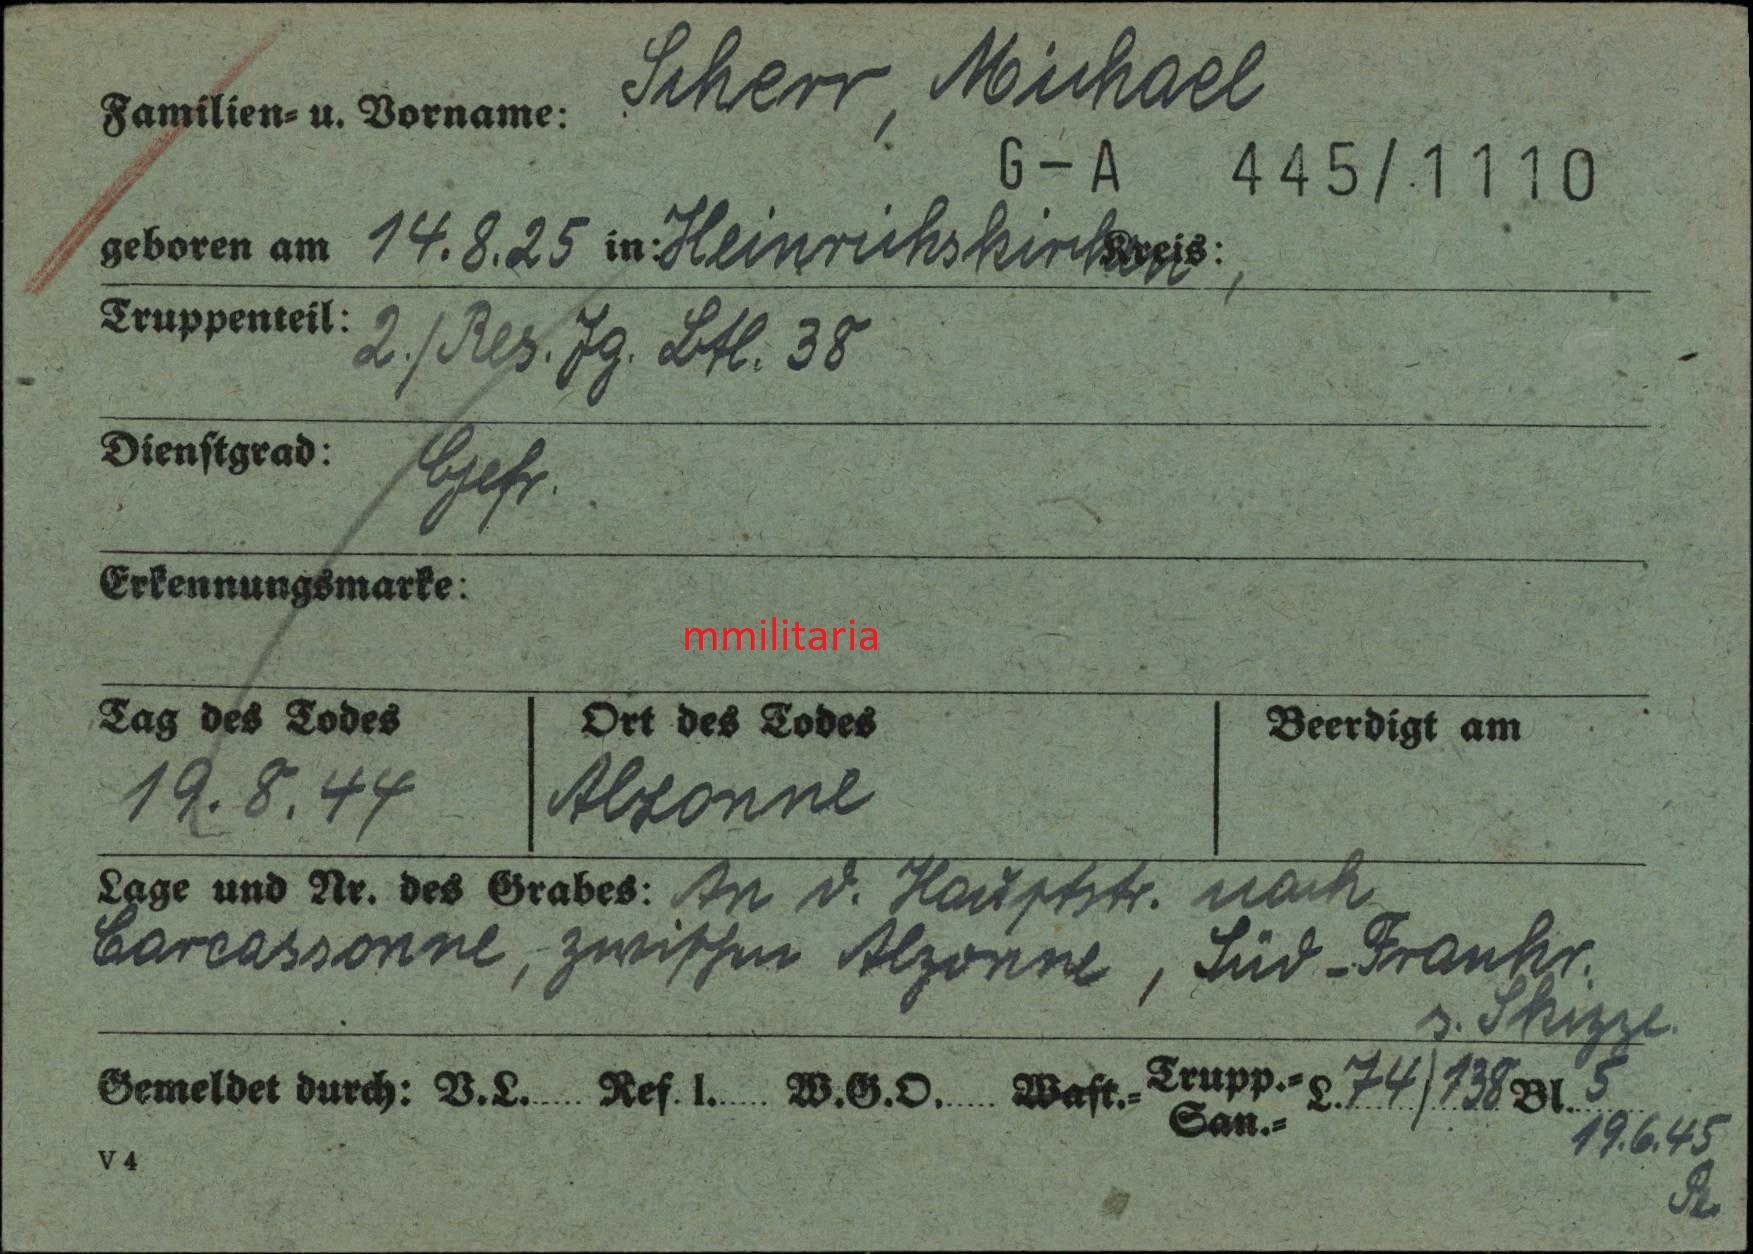 Familien- u. Vorname: Scherr, Michael
G-A 445/1110
geboren am 14.8.25 in: Heinrichskirchen, Kreis:
Truppenteil: 2./Res. Jg. Btl. 38
Dienstgrad: Gefr.
Erkennungsmarke:
mmilitaria
Tag des Todes Ort des Todes Beerdigt am
19.8.44 Alzonne
Lage und Nr. des Grabes: An d. Hauptstr. nach
Carcassonne, zwischen Alzonne, Süd-Frankr.
s. Skizze.
Gemeldet durch: V.L..... Ref. I..... W.G.O..... Wast.- Trupp.- San.- L. 74/138 Bl. 5
19.6.45
V 4